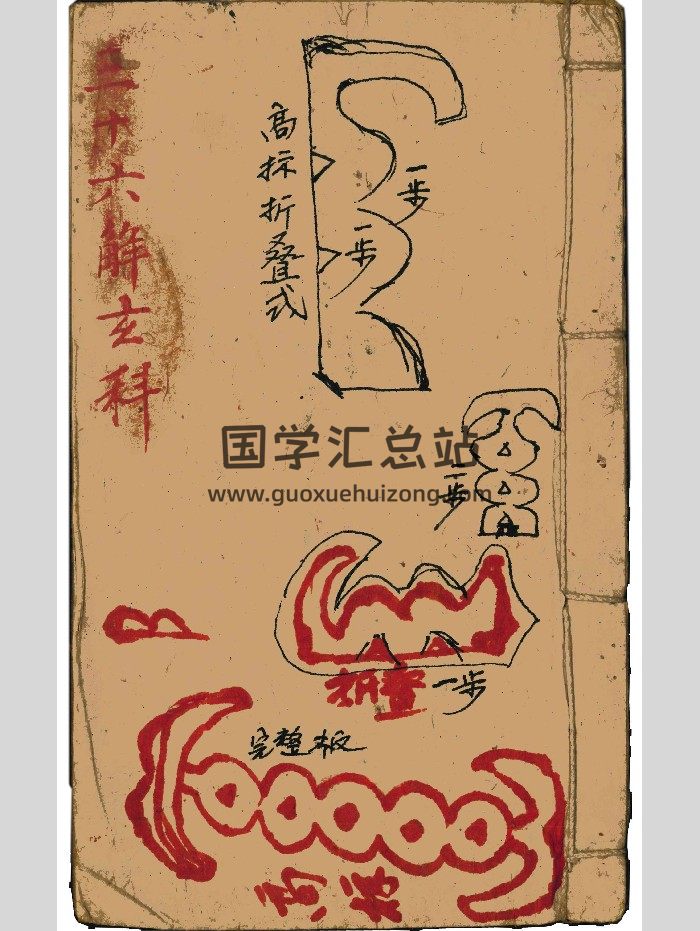 三十六解玄科
高标折叠式
一步
一步
国学汇总站
www.guoxuehuizong.com
一步
折叠一步
完整板
高标